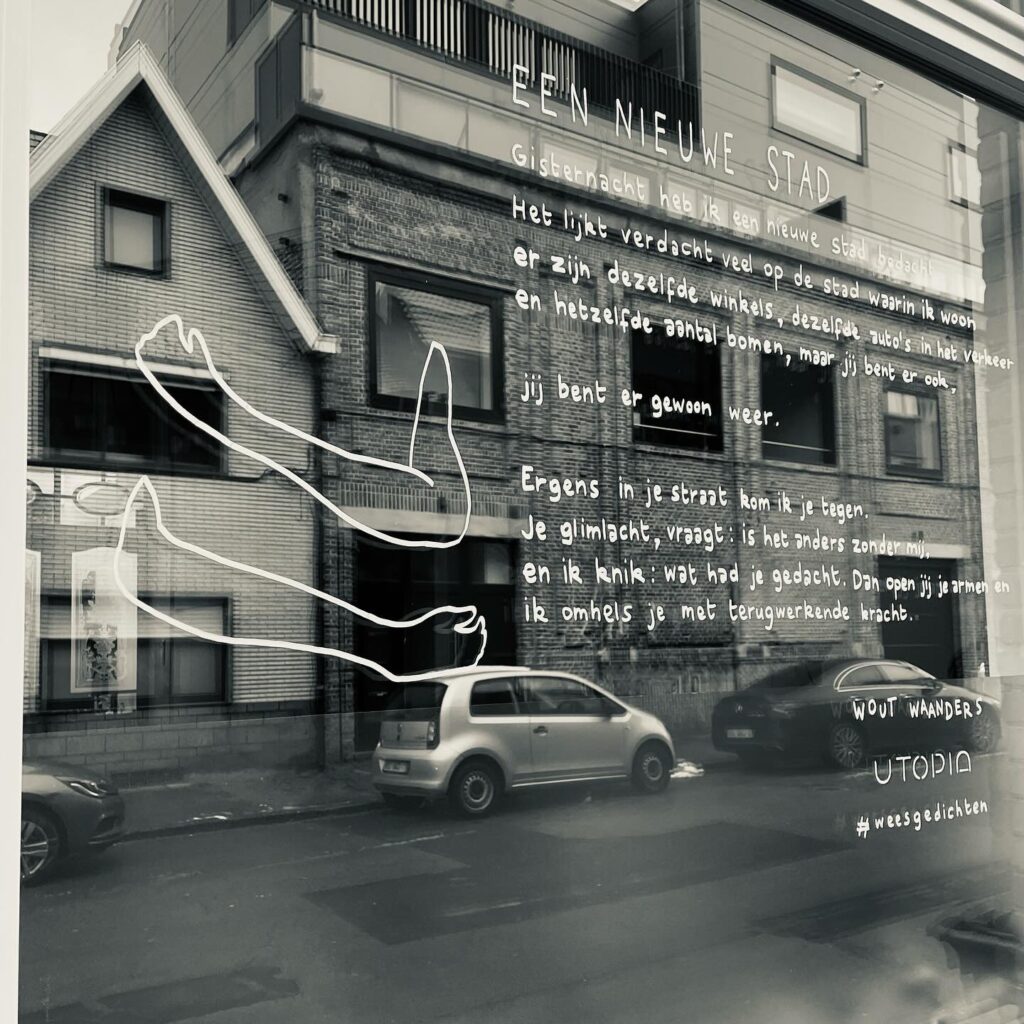 EEN NIEUWE STAD
Gisternacht heb ik een nieuwe stad bedacht.
Het lijkt verdacht veel op de stad waarin ik woon
er zijn dezelfde winkels, dezelfde auto's in het verkeer
en hetzelfde aantal bomen, maar jij bent er ook,
jij bent er gewoon weer.
Ergens in je straat kom ik je tegen.
Je glimlacht, vraagt: is het anders zonder mij,
en ik knik: wat had je gedacht. Dan open jij je armen en
ik omhels je met terugwerkende kracht.
WOUT WAANDERS
UTOPIA
#weesgedichten